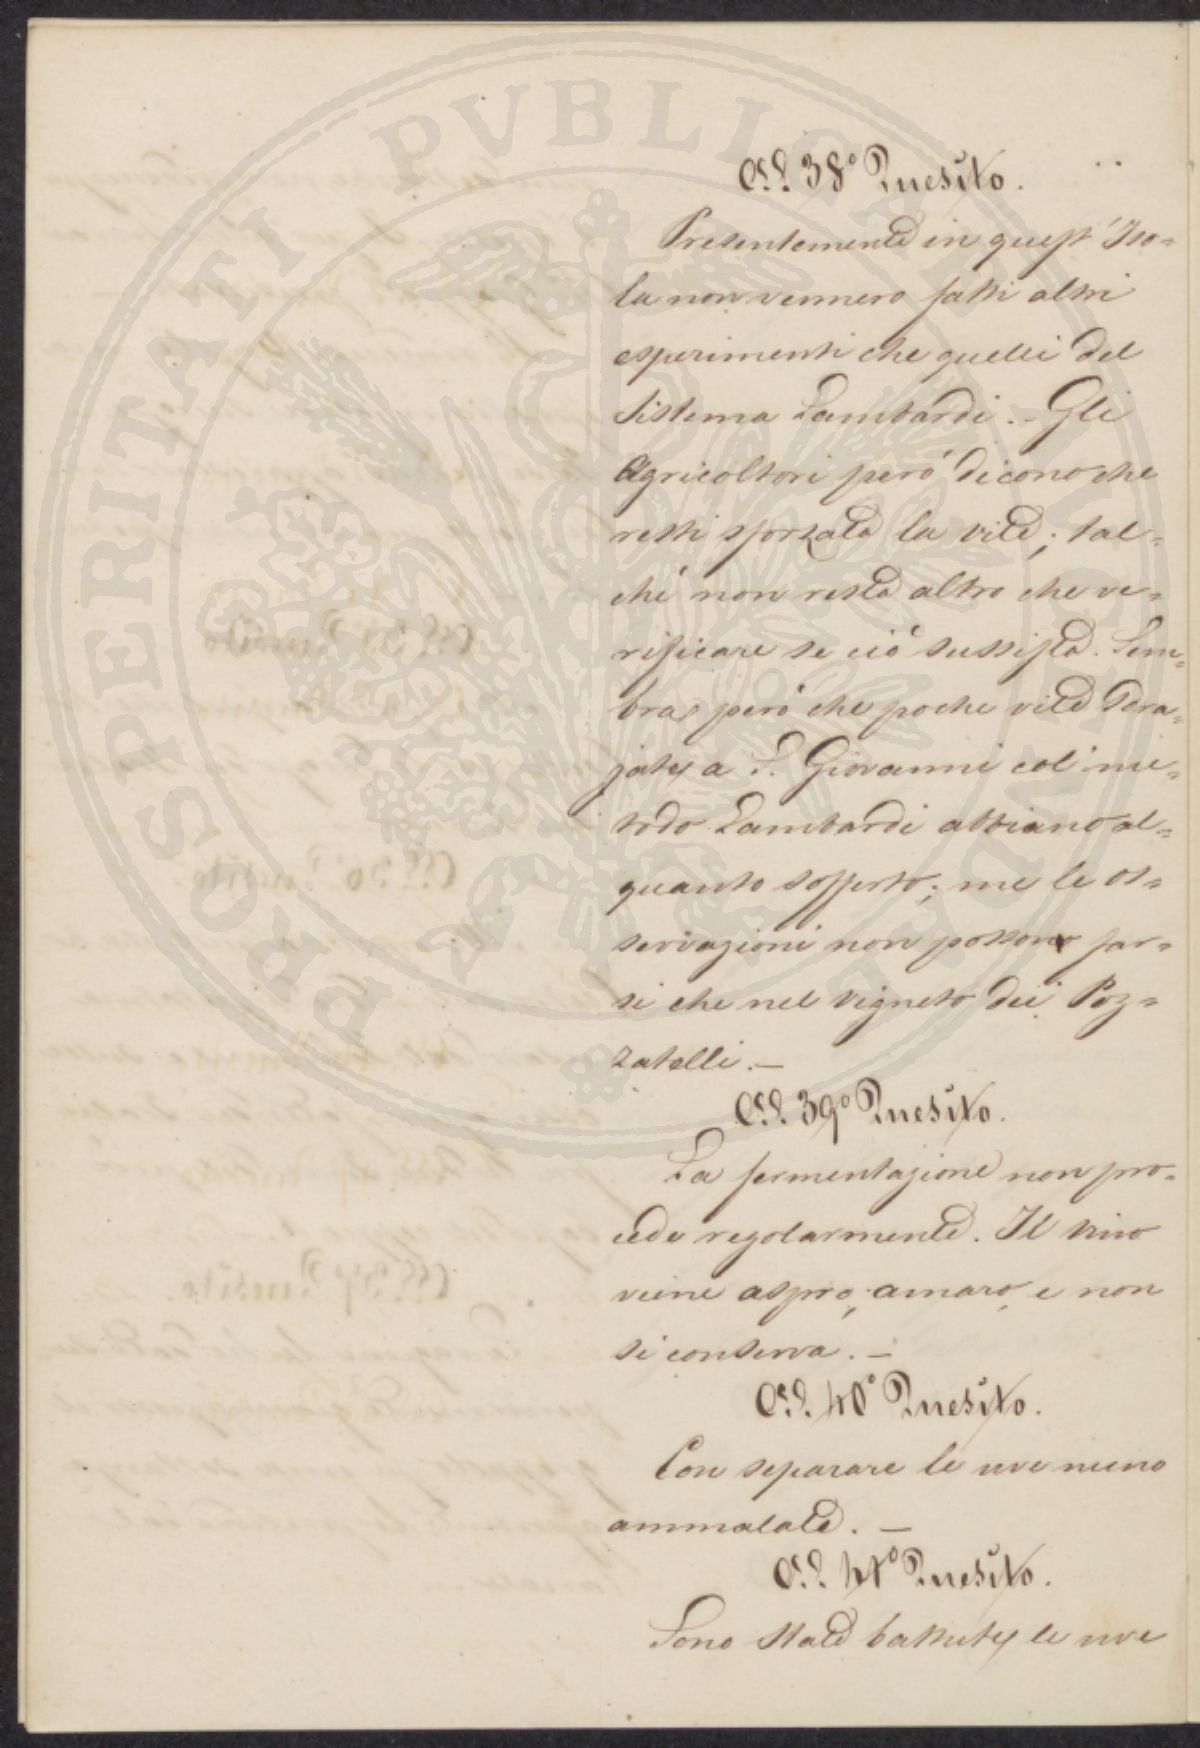 PROSPERITATI PVBLICAE
Al 38º Quesito.
Presentemente in quest' Iso=
la non vennero fatti altri
esperimenti che quelli del
Sistema Lambardi. - Gli
Agricoltori però dicono che
resti sforzata la vite; tal=
chè non resta altro che ve=
rificare se ciò sussista. Sem=
bra, però che poche vite
a S. Giovanni col me=
todo Lambardi abbiano al=
quanto sofferto; me le os=
servazioni non possono far=
si che nel vigneto dei Poz=
zatelli. —
Al 39º Quesito.
La fermentazione non pro=
cede regolarmente. Il vino
viene aspro, amaro, e non
si conserva. —
Al 40º Quesito.
Con separare le uve meno
ammalate. —
Al 41º Quesito.
Sono state battute, le uve